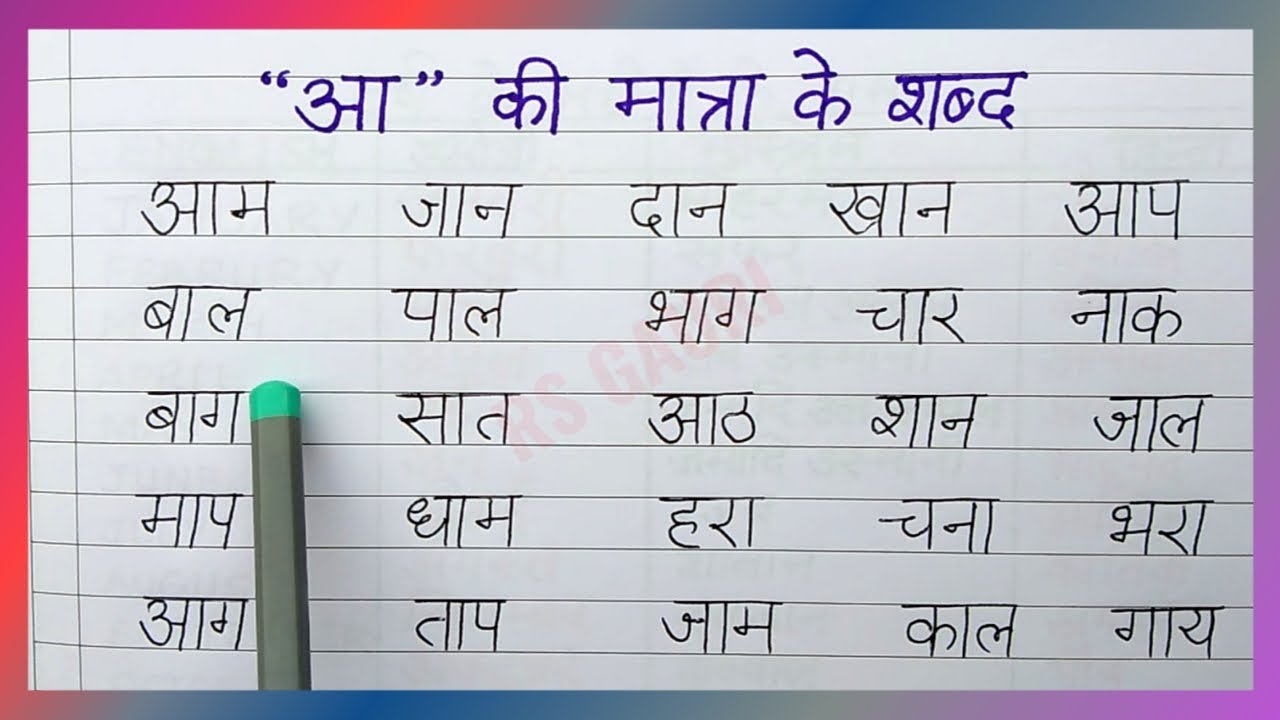 “आ” की मात्रा के शब्द
आम जान दान खान आप
बाल पाल भाग चार नाक
RS GAURI
बाग सात आठ शान जाल
माप धाम हरा चना भरा
आग ताप जाम काल गाय